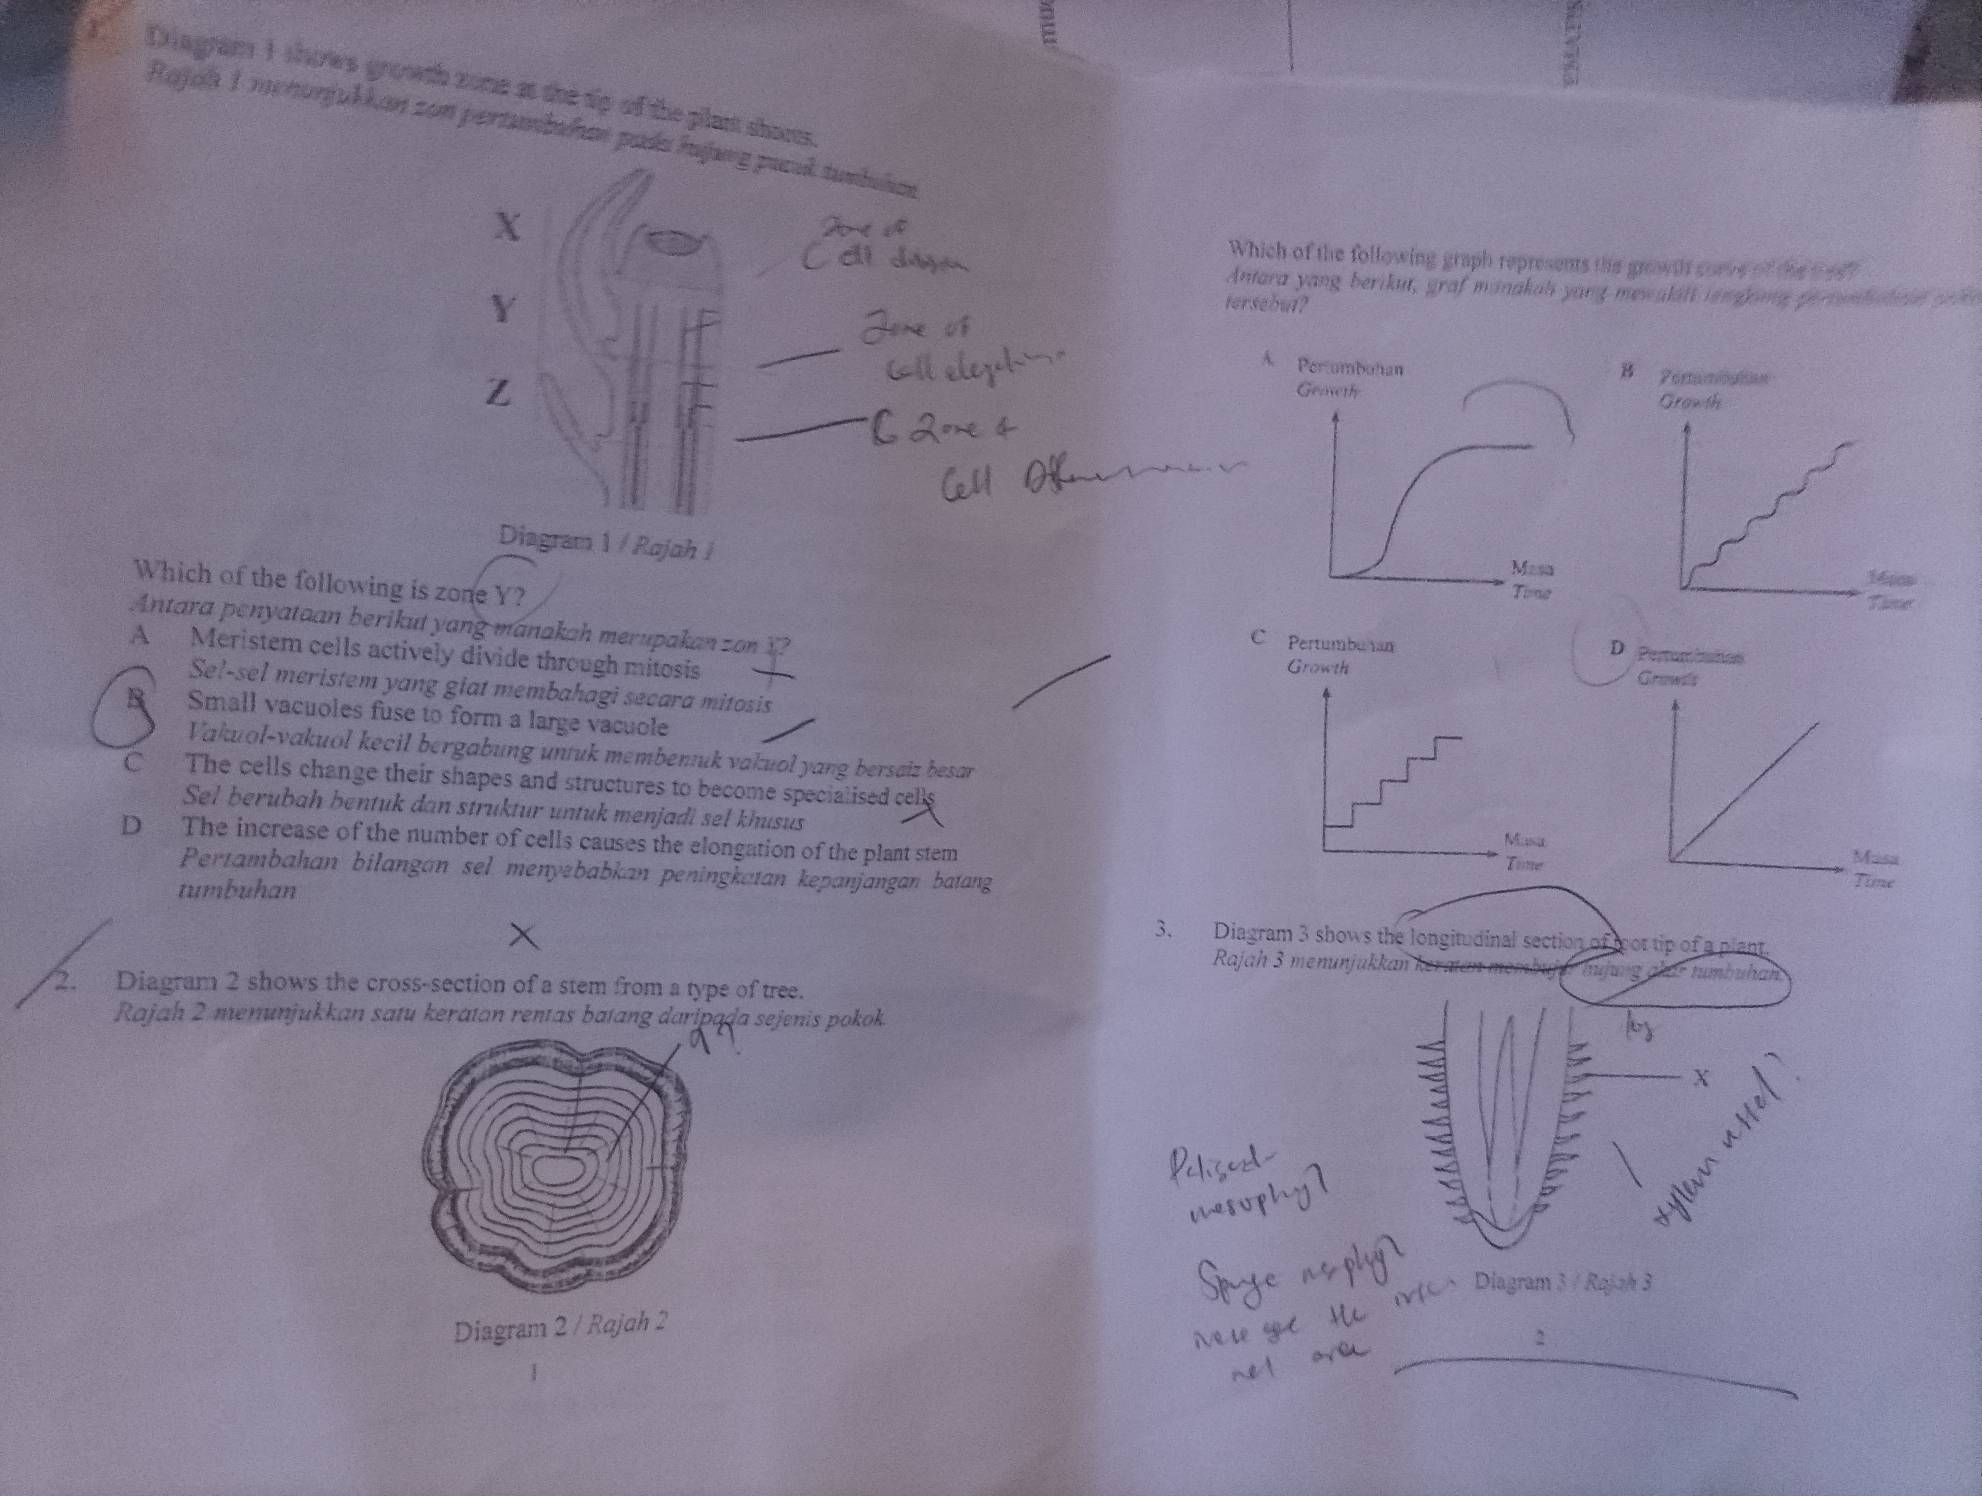 Diagram 1 shows growth zone at the tip of the plant shoots.
Rajah 1 menunjukkan zon pertumbuhan pada hujung pucuk tumbuhan
X
Y
Z
Zone of
Cell
Zone of
Cell
Zone of
Cell
Diagram 1 / Rajah 1
Which of the following is zone Y?
Antara penyataan berikut yang manakah merupakan zon Y?
A Meristem cells actively divide through mitosis
Sel-sel meristem yang giat membahagi secara mitosis
B Small vacuoles fuse to form a large vacuole
Vakuol-vakuol kecil bergabung untuk membentuk vakuol yang bersaiz besar
C The cells change their shapes and structures to become specialised cells
Sel berubah bentuk dan struktur untuk menjadi sel khusus
D The increase of the number of cells causes the elongation of the plant stem
Pertambahan bilangan sel menyebabkan peningkatan kepanjangan batang
tumbuhan
2. Diagram 2 shows the cross-section of a stem from a type of tree.
Rajah 2 menunjukkan satu keratan rentas batang daripada sejenis pokok
Diagram 2 / Rajah 2
1
Which of the following graph represents the growth curve of the tree?
Antara yang berikut, graf manakah yang mewakili lengkung pertumbuhan
tersebut?
A Pertumbuhan
Growth
Masa
Time
B Pertumbuhan
Growth
Masa
Time
C Pertumbuhan
Growth
Masa
Time
D Pertumbuhan
Growth
Masa
Time
3. Diagram 3 shows the longitudinal section of root tip of a plant.
Rajah 3 menunjukkan keratan membujur hujung akar tumbuhan.
X
xylem vessel?
mesophyl
Diagram 3 / Rajah 3
the
area
2